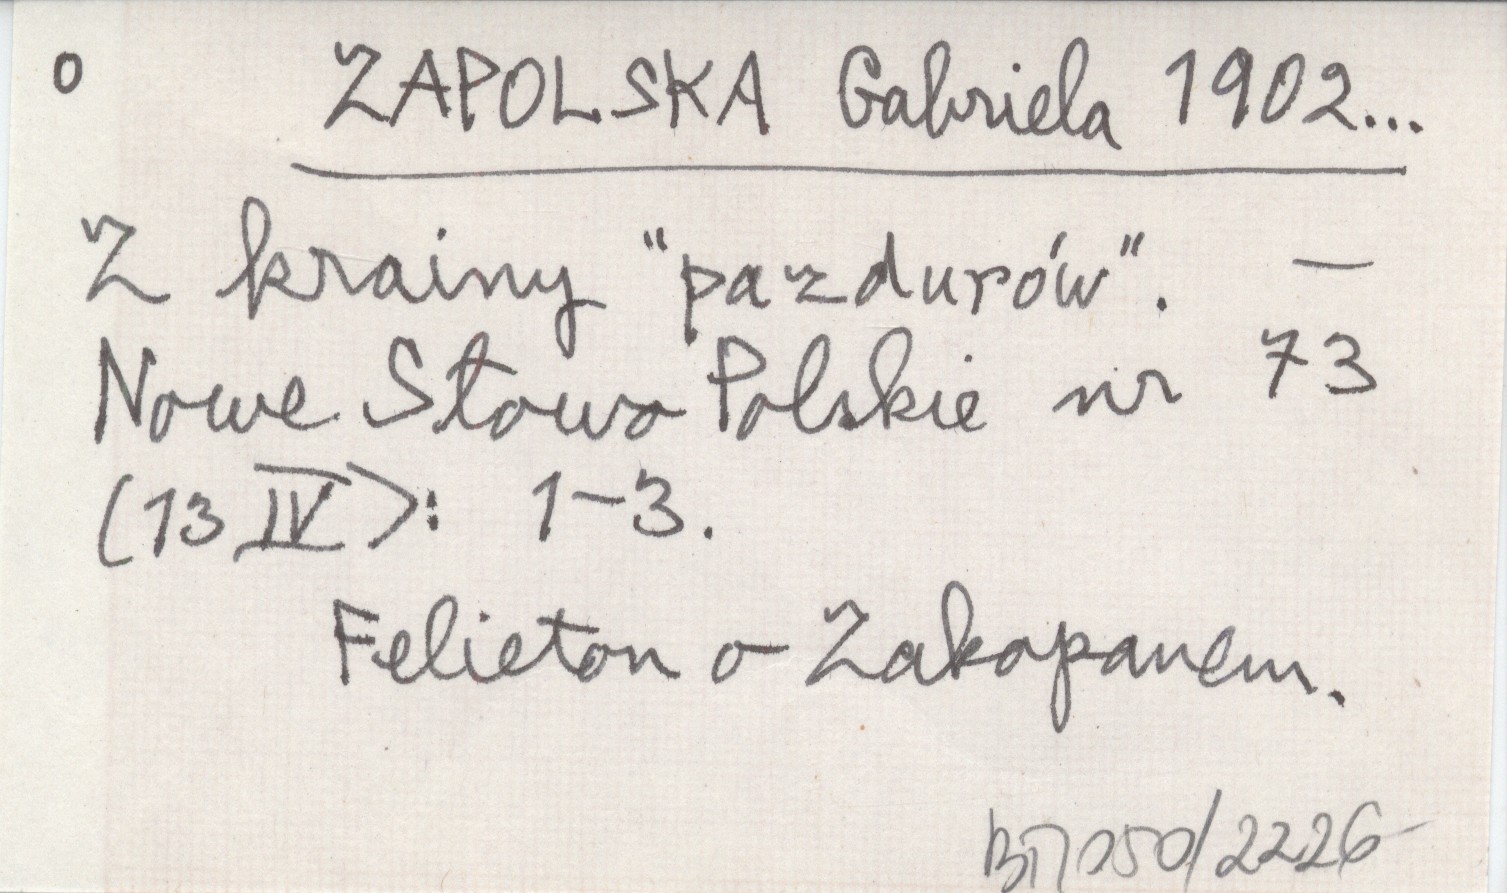 o ZAPOLSKA Gabriela 1902...
Z krainy "pazdurów". —
Nowe Słowo Polskie nr 73
(13 IV): 1-3.
Felieton o Zakopanem.
050/2226